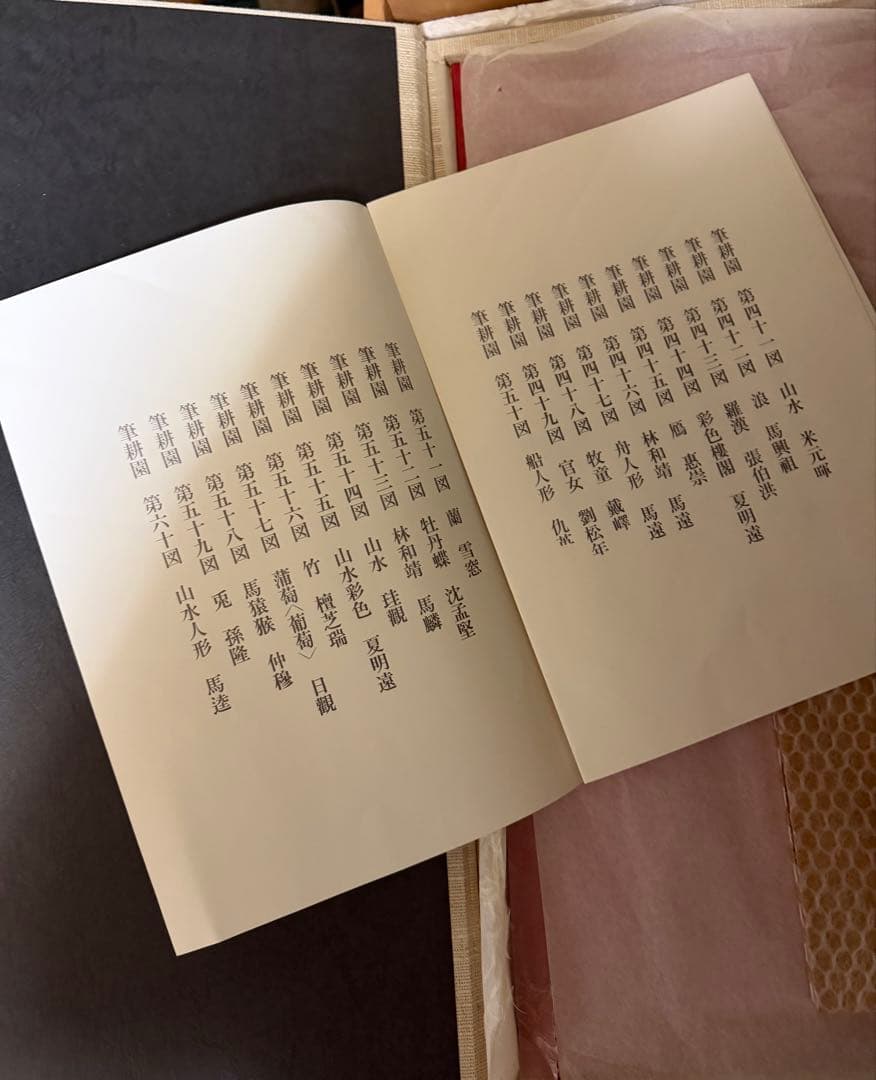 筆耕園 第四十一図 山水 米元暉
筆耕園 第四十二図 浪 馬興祖
筆耕園 第四十三図 羅漢 張伯洪
筆耕園 第四十四図 彩色樓閣 夏明遠
筆耕園 第四十五図 鴈 惠崇
筆耕園 第四十六図 林和靖 馬遠
筆耕園 第四十七図 舟人形 馬遠
筆耕園 第四十八図 牧童 戴嶧
筆耕園 第四十九図 官女 劉松年
筆耕園 第五十図 船人形 仇英
筆耕園 第五十一図 蘭 雪窓 沈孟堅
筆耕園 第五十二図 牡丹蝶 馬麟
筆耕園 第五十三図 林和靖 珪觀
筆耕園 第五十四図 山水 夏明遠
筆耕園 第五十五図 山水彩色
筆耕園 第五十六図 竹 檀芝瑞
筆耕園 第五十七図 蒲萄〈葡萄〉 日觀
筆耕園 第五十八図 馬猿猴 仲穆
筆耕園 第五十九図 兎 孫隆
筆耕園 第六十図 山水人形 馬逵